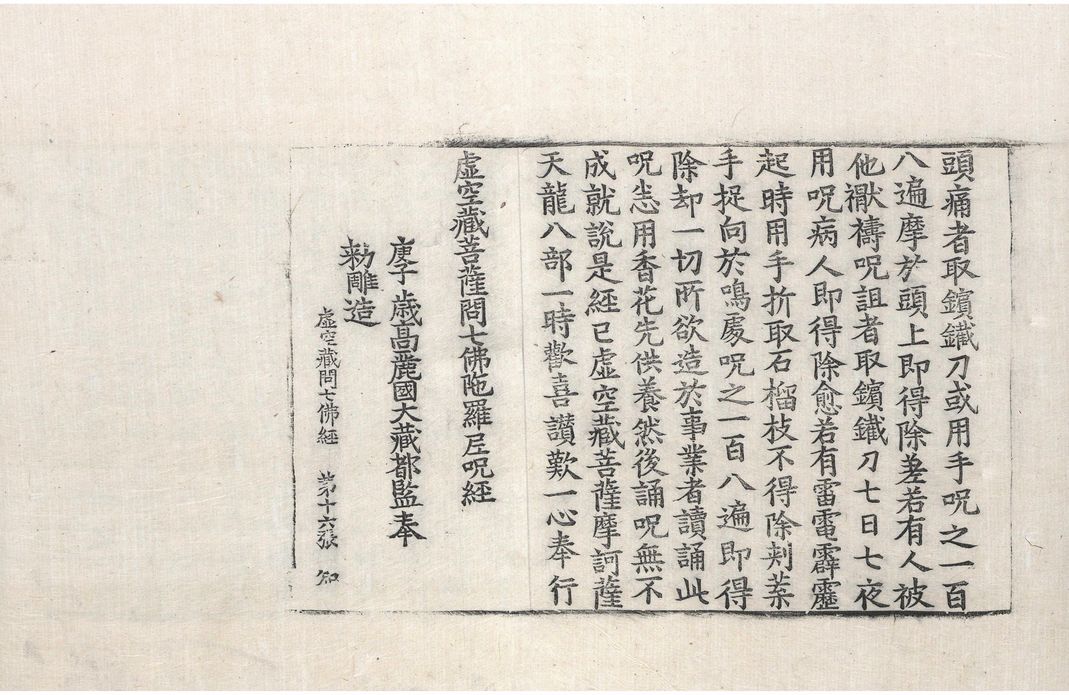 頭痛者取鑌鐵刀或用手呪之一百
八遍摩於頭上即得除差若有人被
他禩禱呪詛者取鑌鐵刀七日七夜
用呪病人即得除愈若有雷電霹靂
起時用手折取石榴枝不得除刾葉
手捉向於鳴處呪之一百八遍即得
除却一切所欲造於事業者讀誦此
呪悉用香花先供養然後誦呪無不
成就說是經已虛空藏菩薩摩訶薩
天龍八部一時歡喜讃歎一心奉行
虛空藏菩薩問七佛陁羅尼呪經
庚子歳高麗國大藏都監奉
勑雕造
虛空藏問七佛經 第十六張 知